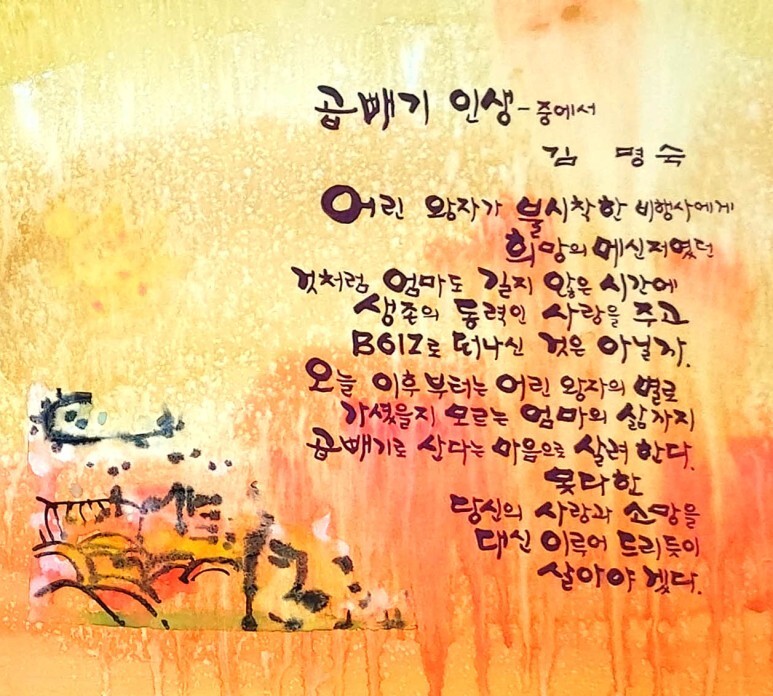 곱빼기 인생 - 중에서
김 명숙
어린 왕자가 불시착한 비행사에게
희망의 메신저였던
것처럼 엄마도 길지 않은 시간에
생존의 동력인 사랑을 주고
B612로 떠나신 것은 아닐까.
오늘 이후부터는 어린 왕자의 별로
가셨을지 모르는 엄마의 삶까지
곱빼기로 산다는 마음으로 살려 한다.
못다한
당신의 사랑과 소망을
대신 이루어 드리듯이
살아야겠다.